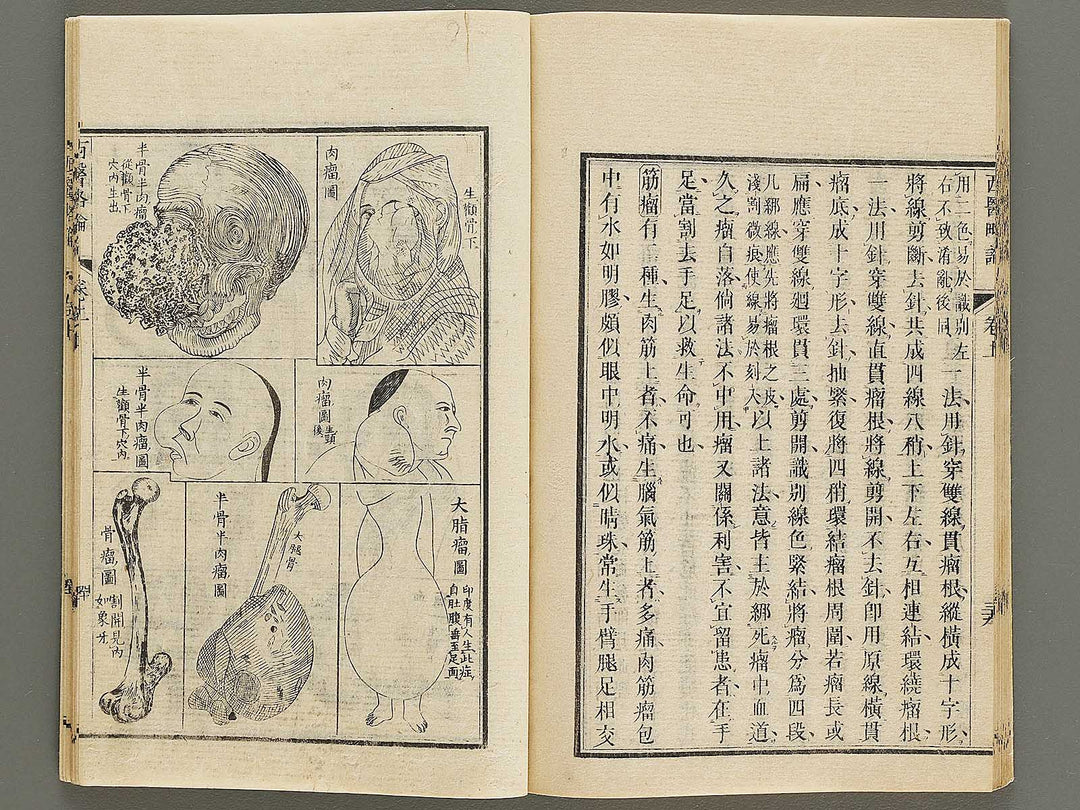 西醫略論
卷中
用二色易於識別左
右不致淆亂後同一法用針穿雙線貫瘤根縱橫成十字形
將線剪斷去針共成四線八稍上下左右互相連結環繞瘤根
一法用針穿雙線直貫瘤根將線剪開不去針卽用原線橫貫
瘤底成十字形去針抽緊復將四稍環結瘤根周圍若瘤長或
扁應穿雙線廻環貫三處剪開識別線色緊結將瘤分爲四段
凡綁線應先將瘤根之皮
淺割微痕使線易於刻入以上諸法意皆主於綁死瘤中血道
久之瘤自落倘諸法不中用瘤又關係利害不宜留患者在手
足當割去手足以救生命可也
筋瘤有種生肉筋上者不痛生腦氣筋上者多痛肉筋瘤包
中有水如明膠頗似眼中明水或似睛珠常生手臂腿足相交
肉瘤圖
生顴骨下
半骨半肉瘤
從顴骨下
穴內生出
肉瘤圖
生頸
後
半骨半肉瘤圖
生顴骨下穴內
大脂瘤圖
印度有人生此症
自肚腹垂至足面
半骨半肉瘤圖
大腿骨
骨瘤圖
割開見內
如象牙